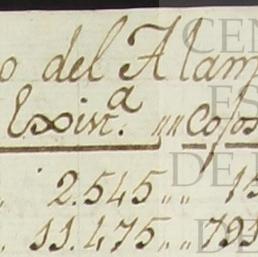 o del Alam
Exinᵃ. „„ Cosos
„ 2.545 „„ 15
. 11.475 „„ 795
CEN
ES
DE
DE